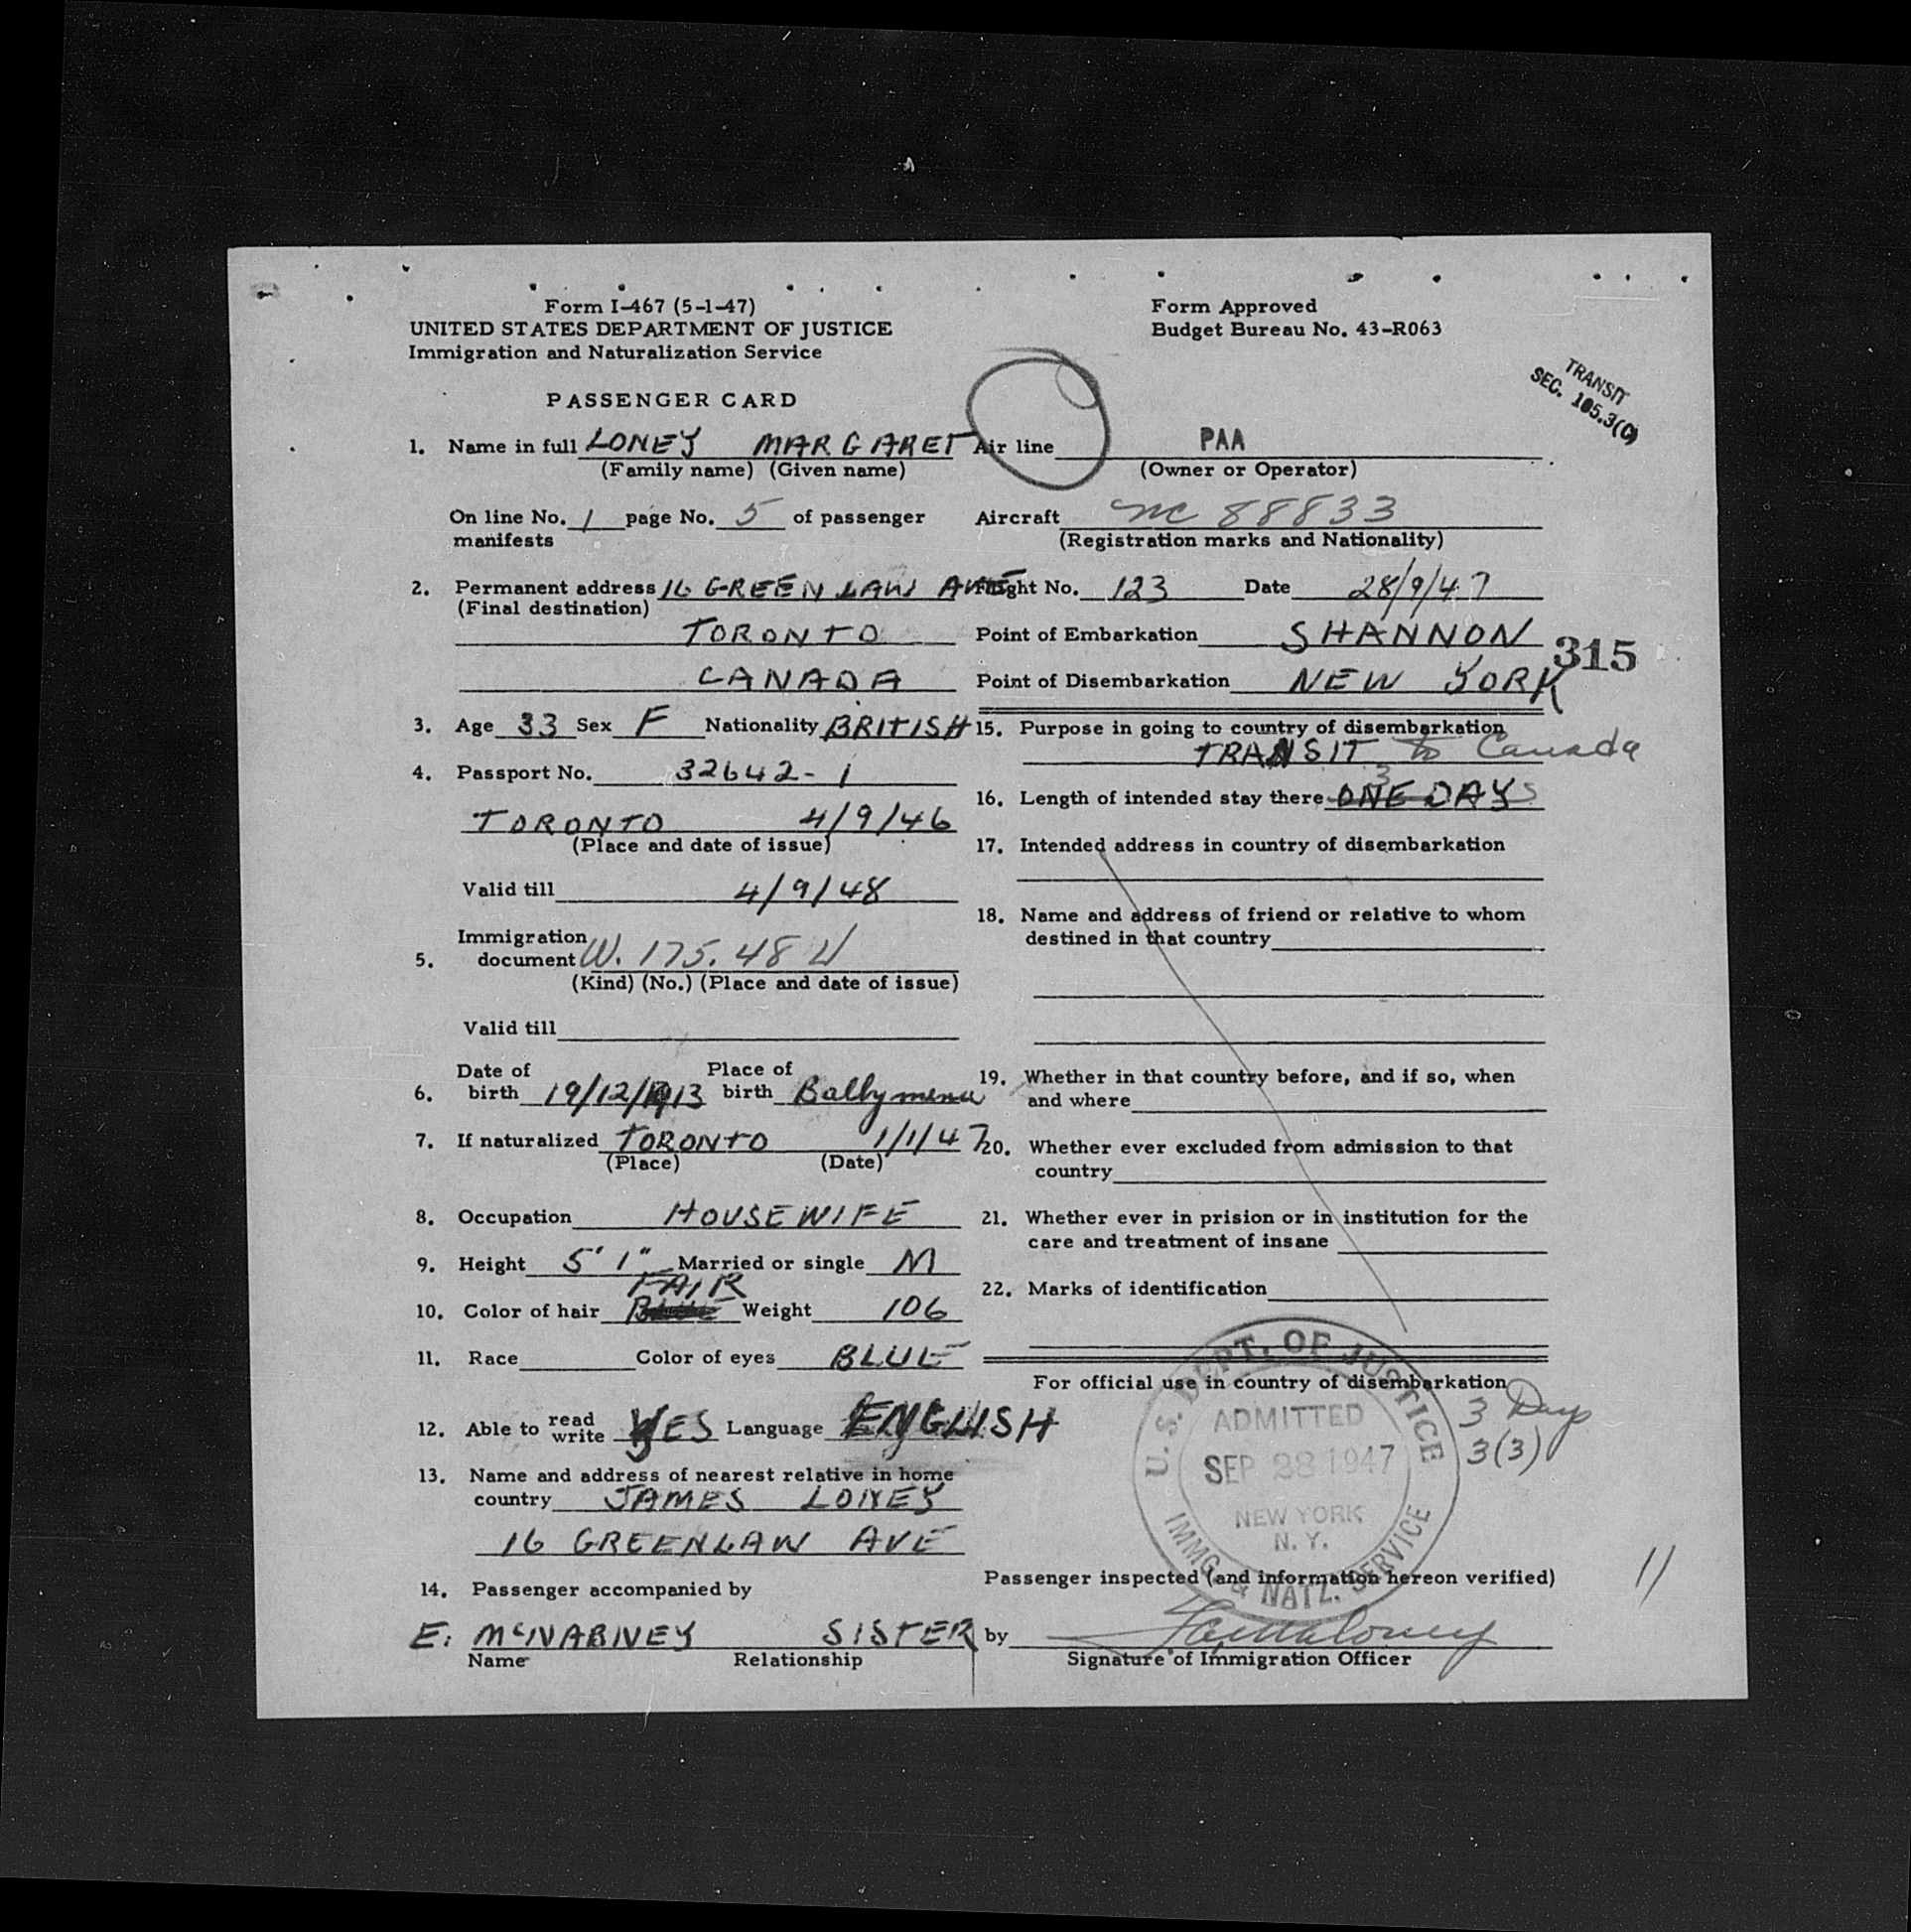 Form I-467 (5-1-47)
UNITED STATES DEPARTMENT OF JUSTICE
Immigration and Naturalization Service
PASSENGER CARD
Form Approved
Budget Bureau No. 43-R063
TRANSIT
SEC. 105.3(C)
1. Name in full LONEY MARGARET
(Family name) (Given name)
On line No. 1 page No. 5 of passenger
manifests
2. Permanent address 16 GREENLAW AVE
(Final destination)
TORONTO
CANADA
3. Age 33 Sex F Nationality BRITISH
4. Passport No. 32642-1
TORONTO 4/9/46
(Place and date of issue)
Valid till 4/9/48
Immigration
5. document W. 175.48
(Kind) (No.) (Place and date of issue)
Valid till
Date of Place of
6. birth 19/12/1913 birth Ballymena
7. If naturalized TORONTO 1/1/47
(Place) (Date)
8. Occupation HOUSEWIFE
9. Height 5' 1" Married or single M
FAIR
10. Color of hair Weight 106
11. Race Color of eyes BLUE
12. Able to read write YES Language ENGLISH
13. Name and address of nearest relative in home
country JAMES LONEY
16 GREENLAW AVE
14. Passenger accompanied by
E. McNABNEY SISTER
Name Relationship
Air line PAA
(Owner or Operator)
Aircraft NC 88833
(Registration marks and Nationality)
Flight No. 123 Date 28/9/47
Point of Embarkation SHANNON
315
Point of Disembarkation NEW YORK
15. Purpose in going to country of disembarkation
TRANSIT to Canada
3
16. Length of intended stay there ONE DAYS
17. Intended address in country of disembarkation
18. Name and address of friend or relative to whom
destined in that country
19. Whether in that country before, and if so, when
and where
20. Whether ever excluded from admission to that
country
21. Whether ever in prision or in institution for the
care and treatment of insane
22. Marks of identification
For official use in country of disembarkation
U.S. DEPT. OF JUSTICE
ADMITTED
SEP 28 1947
NEW YORK
N. Y.
IMMG. & NATZ. SERVICE
3 Days
3(3)
Passenger inspected (and information hereon verified)
11
by
Signature of Immigration Officer